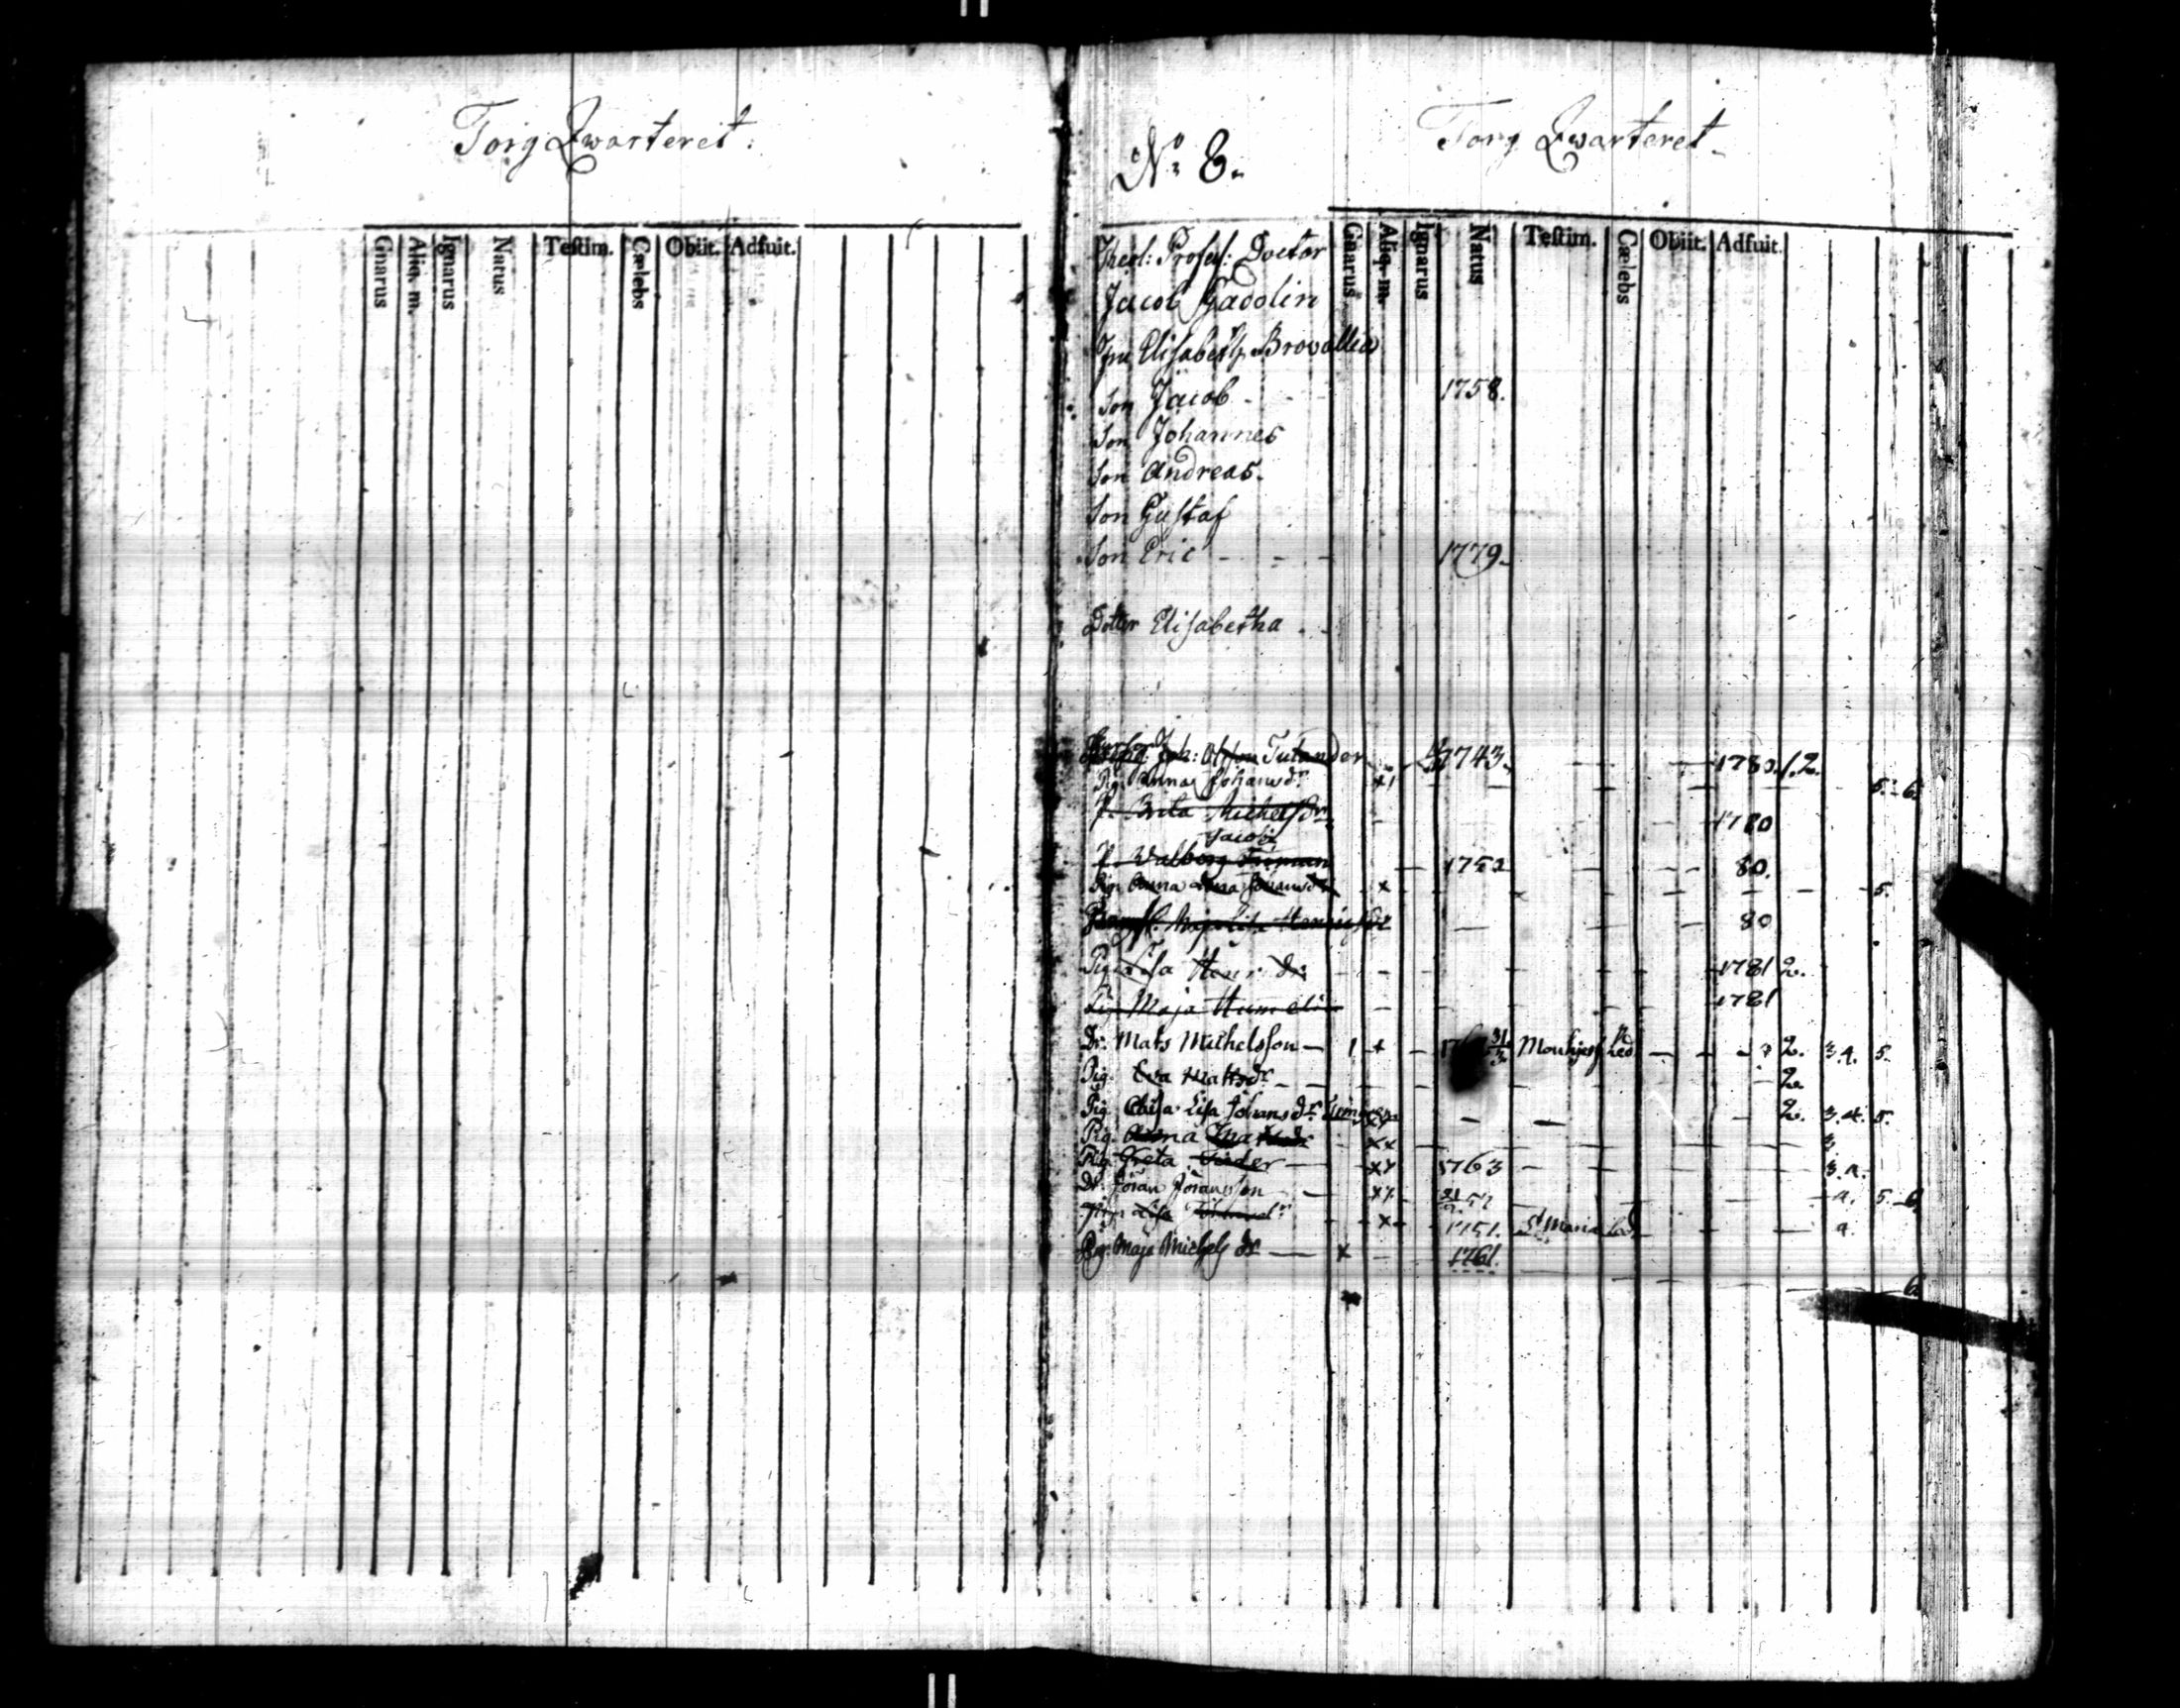 Torg Qwarteret.
Gnarus Aliq. m. Ignarus Natus Testim. Cælebs Obiit. Adfuit.
Torg Qwarteret
No 8.
Gnarus Aliq. m. Ignarus Natus Testim. Cælebs Obiit. Adfuit.
Theol: Profess: Doctor
Jacob Gadolin
Fru Elisabeth Brovallia
Son Jacob - 1758.
Son Johannes
Son Andreas.
Son Gustaf
Son Eric - - - 1779.
Dotter Elisabetha
Joh: Tulander 1743. 1780. 1.2.
Pig. Anna Johansdr. 5. 6.
P. Brita Michelsdr. 1780
Jacobs
P. Walborg 1752 80.
Pig. Anna Johansdr x 5.
Maja Lisa Henricsdr 80
Pig. Lisa Henr dr 1781 2.
Pig Maja Humelin 1781
Dr. Mats Michelsson 1 + 31/3 2. 3.4. 5.
Pig. Eva Mattsdr 2.
Pig. Lisa Johansdr 2. 3.4. 5.
Pig. Anna xx 3
Pig. Greta xx 1763 3.4.
Dr. Jöran Jöransson xx 57 4. 5. 6
Pig. Lisa x 1751. St Maria 4.
Pig. Maja Michels dr x 1761.
6